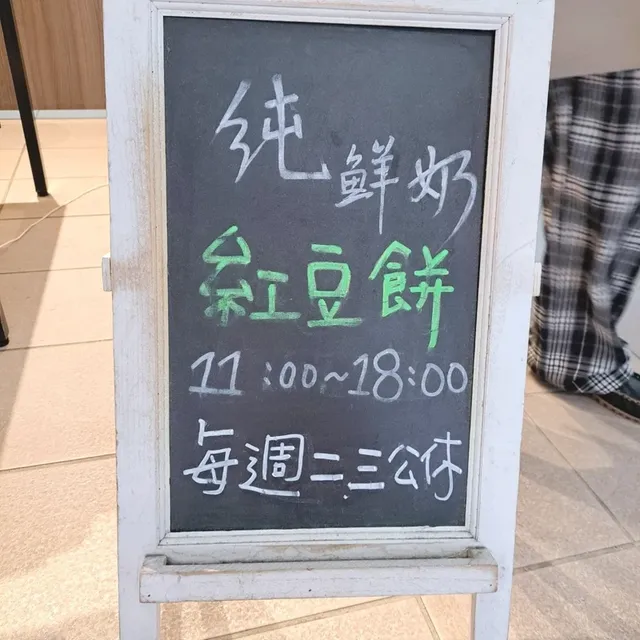 純鮮奶
紅豆餅
11:00~18:00
每週二.三公休